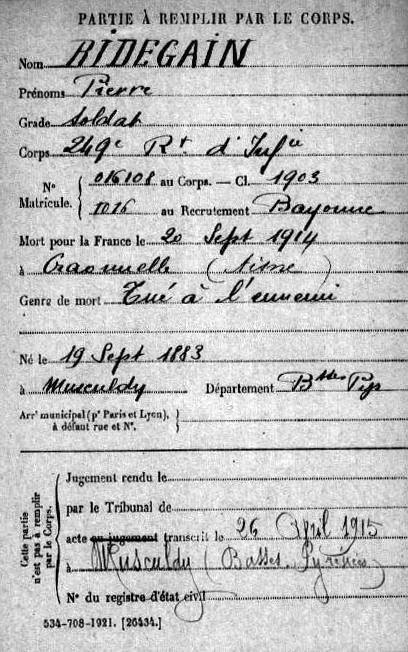 PARTIE À REMPLIR PAR LE CORPS.
Nom BIDEGAIN
Prénoms Pierre
Grade soldat
Corps 249e Rt d'Infie
No Matricule. { 016108 au Corps. — Cl. 1903
1016 au Recrutement Bayonne
Mort pour la France le 20 Sept 1914
à Craonnelle (Aisne)
Genre de mort Tué à l'ennemi
Né le 19 Sept 1883
à Musculdy Département Bsses Pyr
Arrt municipal (pr Paris et Lyon), }
à défaut rue et No.
Cette partie n'est pas à remplir par le Corps.
Jugement rendu le
par le Tribunal de
acte ou jugement transcrit le 26 Avril 1915
à Musculdy (Basses-Pyrénées)
No du registre d'état civil
534-708-1921. [26434.]